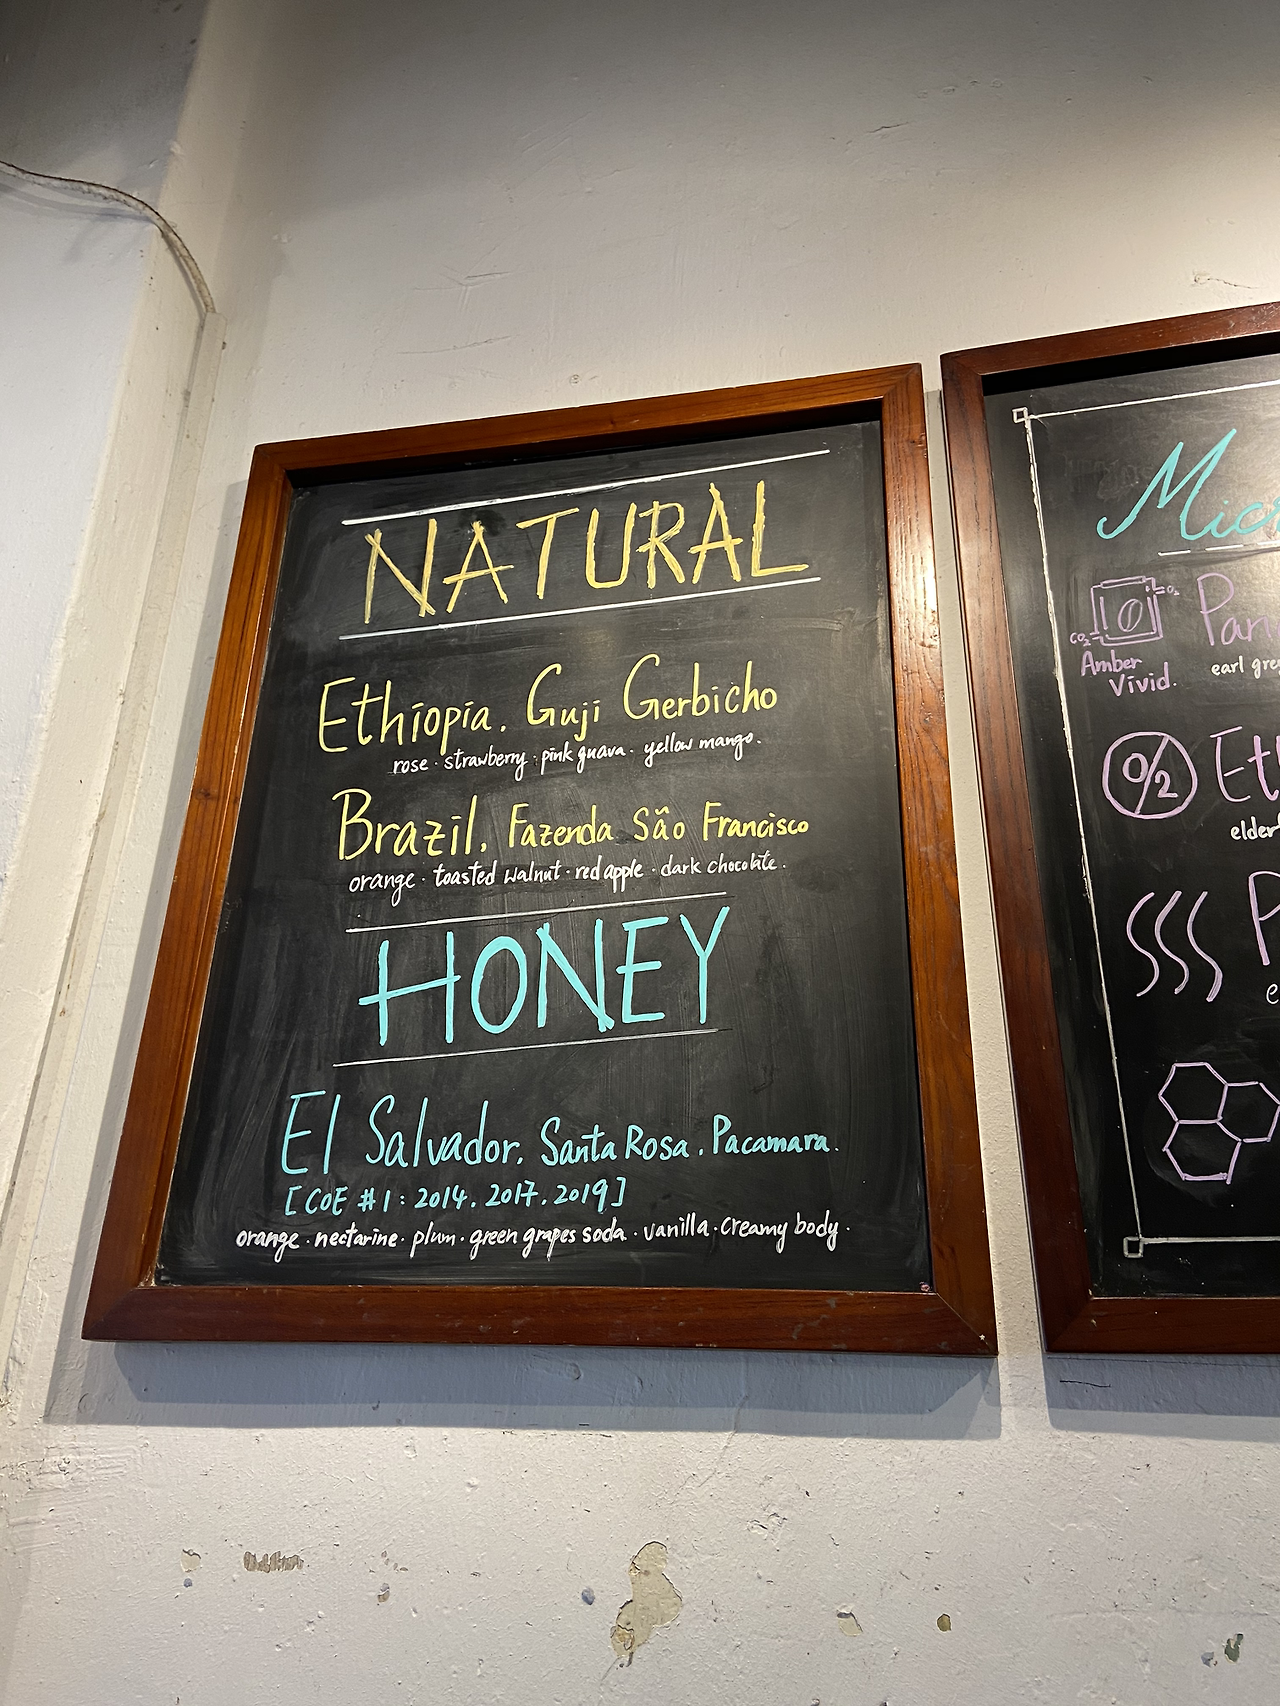 NATURAL
Ethiopia. Guji Gerbicho
rose · strawberry · pink guava · yellow mango.
Brazil. Fazenda São Francisco
orange · toasted walnut · red apple · dark chocolate.
HONEY
El Salvador. Santa Rosa. Pacamara.
[CoE #1: 2014. 2017. 2019]
orange · nectarine · plum · green grapes soda · vanilla · creamy body.
CO₂
Amber
Vivid.
earl
O/2